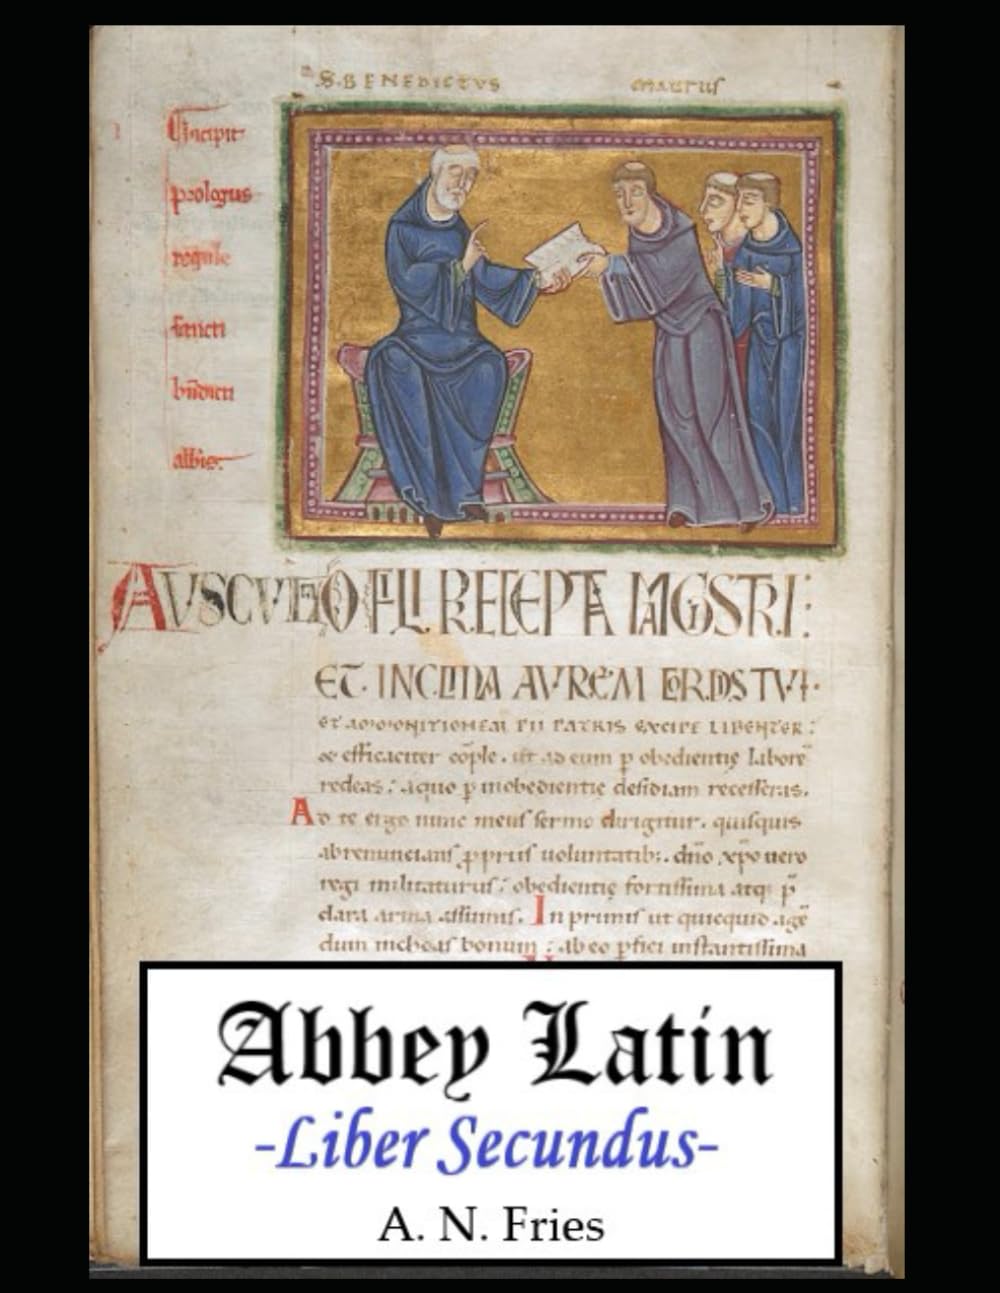 S. BENEDICTVS
MAVRUS
Incipit
prologus
regule
sancti
bñdicti
abbis.
AVSCVLTA O FILI PRECEPTA MAGISTRI:
ET. INCLINA AVREM CORDIS TVI.
ET ADMONITIONEM PII PATRIS EXCIPE LIBENTER:
& efficaciter cõple. ut ad eum p obedientię laborẽ
redeas: a quo p inobedientię desidiam recesseras.
Ad te ergo nunc meus sermo dirigitur. quisquis
abrenuncians propriis uoluntatib;. dño xp̃o uero
regi militaturus: obedientię fortissima atq; p̃
clara arma assumis. In primis ut quicquid agẽ
dum inchoas bonum: ab eo pfici instantissima
Abbey Latin
-Liber Secundus-
A. N. Fries